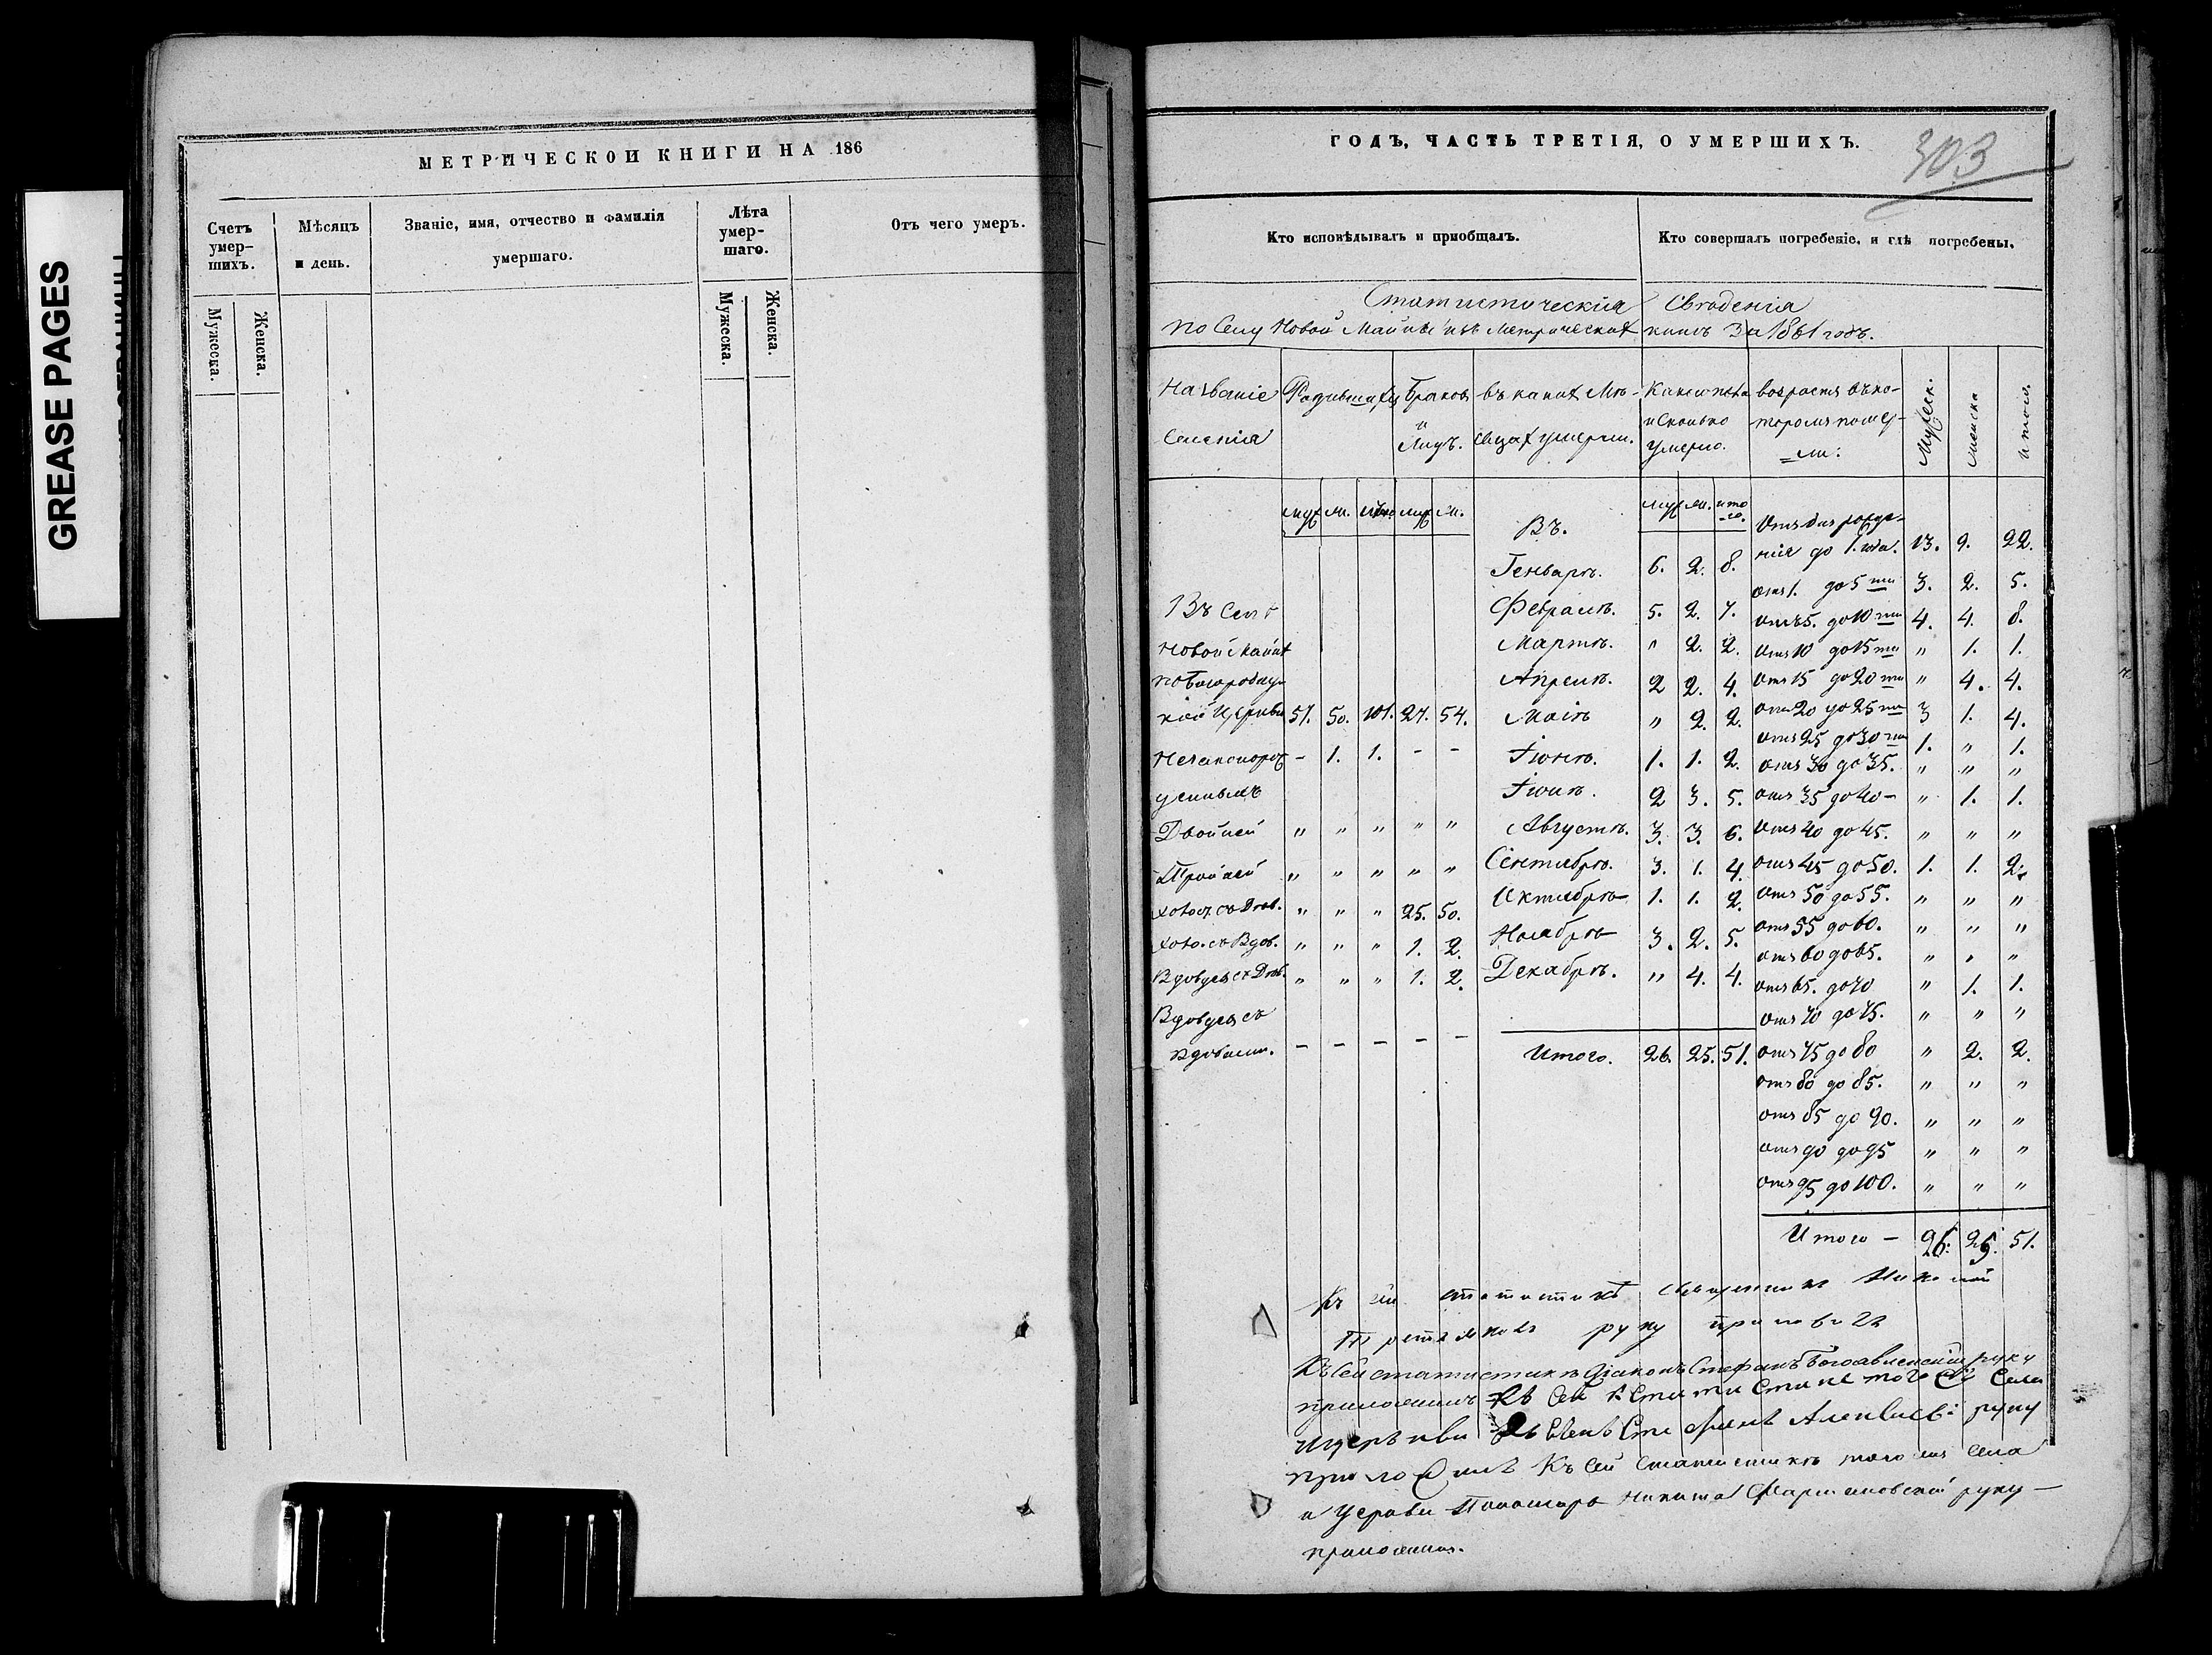 GREASE PAGES
МЕТРИЧЕСКОЙ КНИГИ НА 186
Счетъ умер-
шихъ.
Мѣсяцъ
и день.
Званіе, имя, отчество и фамилія
умершаго.
Лѣта
умер-
шаго.
Отъ чего умеръ.
Мужеска.
Женска.
Мужеска.
Женска.
ГОДЪ, ЧАСТЬ ТРЕТІЯ, О УМЕРШИХЪ.
303
Кто исповѣдывалъ и пріобщалъ.
Кто совершалъ погребеніе, и гдѣ погребены.
Статистическія Сведенія
по Селу Новой Майны изъ метрическихъ книгъ за 1861 годъ.
Названіе Родившихся браковъ въ какихъ мѣ- возрастъ въ ко-
Селенія и лицъ. сяцахъ умерли. и сколько умерло. торомъ поме-
Мужеск. женска итого.
муж ж. итого муж ж. Въ. муж ж. ито-го. Отъ дня рожде-
Генварѣ. 6. 2. 8. нія до 1. года. 13. 9. 22.
отъ 1. до 5 ти 3. 2. 5.
Въ Селѣ Февралѣ. 5. 2. 7. отъ 5. до 10 ти 4. 4. 8.
Новой Майнѣ Мартѣ. " 2. 2. Отъ 10 до 15 ти " 1. 1.
по Богородиц- Апрелѣ. 2 2. 4. Отъ 15 до 20 ти " 4. 4.
кой Церкви 51. 50. 101. 27. 54. Маіѣ " 2. 2. отъ 20 до 25 ти 3 1. 4.
отъ 25 до 30 ти 1. " 1.
- 1. 1. - - Іюнѣ. 1. 1. 2. отъ 30 до 35. " " "
Іюлѣ. 2 3. 5. отъ 35 до 40 - " 1. 1.
Двойней " " " " " Августѣ. 3. 3. 6. Отъ 40 до 45. " " "
Тройней " " " " " Сентябрѣ. 3. 1. 4. отъ 45 до 50. 1. 1. 2.
холос. съ Дѣв. " " " 25. 50. Октябрѣ 1. 1. 2. Отъ 50 до 55. " " "
отъ 55 до 60. " " "
холо. съ Вдов. " " " 1. 2. Ноябрѣ 3. 2. 5. отъ 60 до 65. " " "
Вдовцы съ Дѣв. " " " 1. 2. Декабрѣ. " 4. 4. отъ 65. до 70 " 1. 1.
Вдовцы съ отъ 70 до 75. " " "
вдовами. - - - - - Итого. 26. 25. 51. отъ 75 до 80 " 2. 2.
отъ 80 до 85. " " "
отъ 85 до 90. " " "
отъ 90 до 95 " " "
отъ 95 до 100. " " "
Итого - 26. 25. 51.
Къ сей статистикѣ священникъ Николай
руку приложилъ
Къ Сей статистикѣ Діаконъ Стефанъ Богоявленскій руку
приложилъ Къ Сей Статистике того же Села
и церькви Стефанъ Алексіевъ руку
приложилъ Къ Сей статистикѣ того же села
и Церкви Пономарь Никита руку
приложилъ.